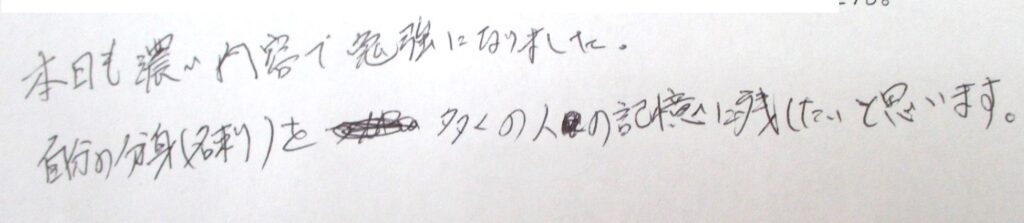 本日も濃い内容で勉強になりました。
自分の分身(名刺)を 多くの人の記憶に残したいと思います。